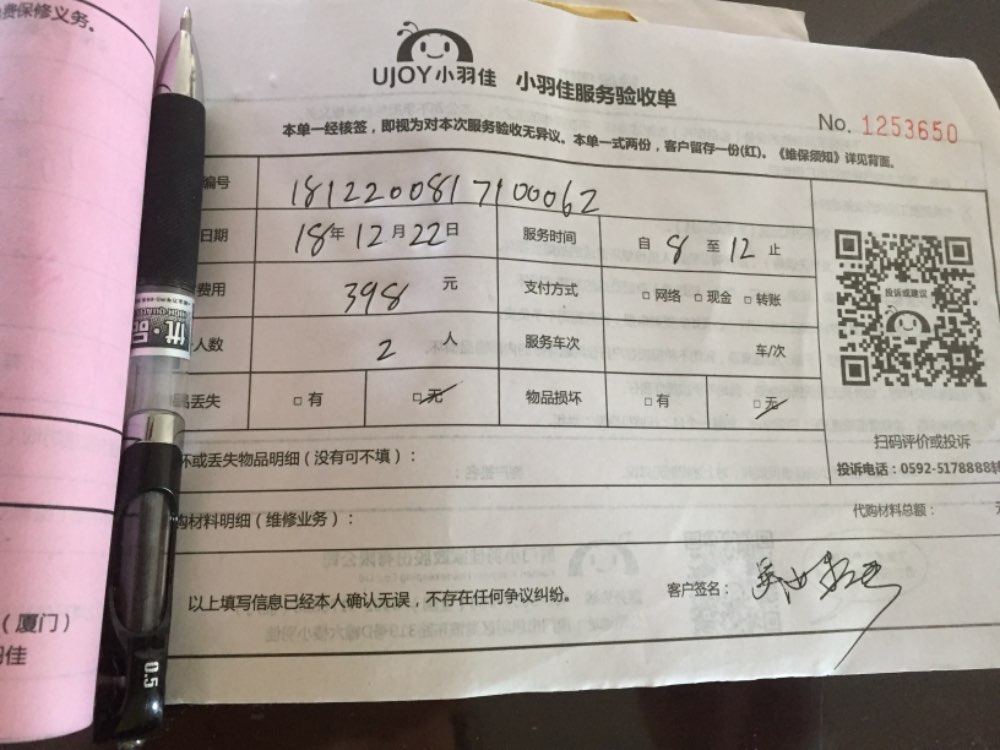 费保修义务。
UJOY小羽佳 小羽佳服务验收单
No. 1253650
本单一经核签，即视为对本次服务验收无异议。本单一式两份，客户留存一份(红)。《维保须知》详见背面。
编号 1812200817100062
日期 18年12月22日 服务时间 自 8 至 12 止
费用 398 元 支付方式 □ 网络 □ 现金 □ 转账
人数 2 人 服务车次 车/次
丢失 □ 有 □ 无 物品损坏 □ 有 □ 无
投诉或建议
扫码评价或投诉
投诉电话：0592-5178888转
坏或丢失物品明细（没有可不填）：
购材料明细（维修业务）： 代购材料总额： 元
以上填写信息已经本人确认无误，不存在任何争议纠纷。 客户签名：
（厦门）
羽佳
优·品
0.5